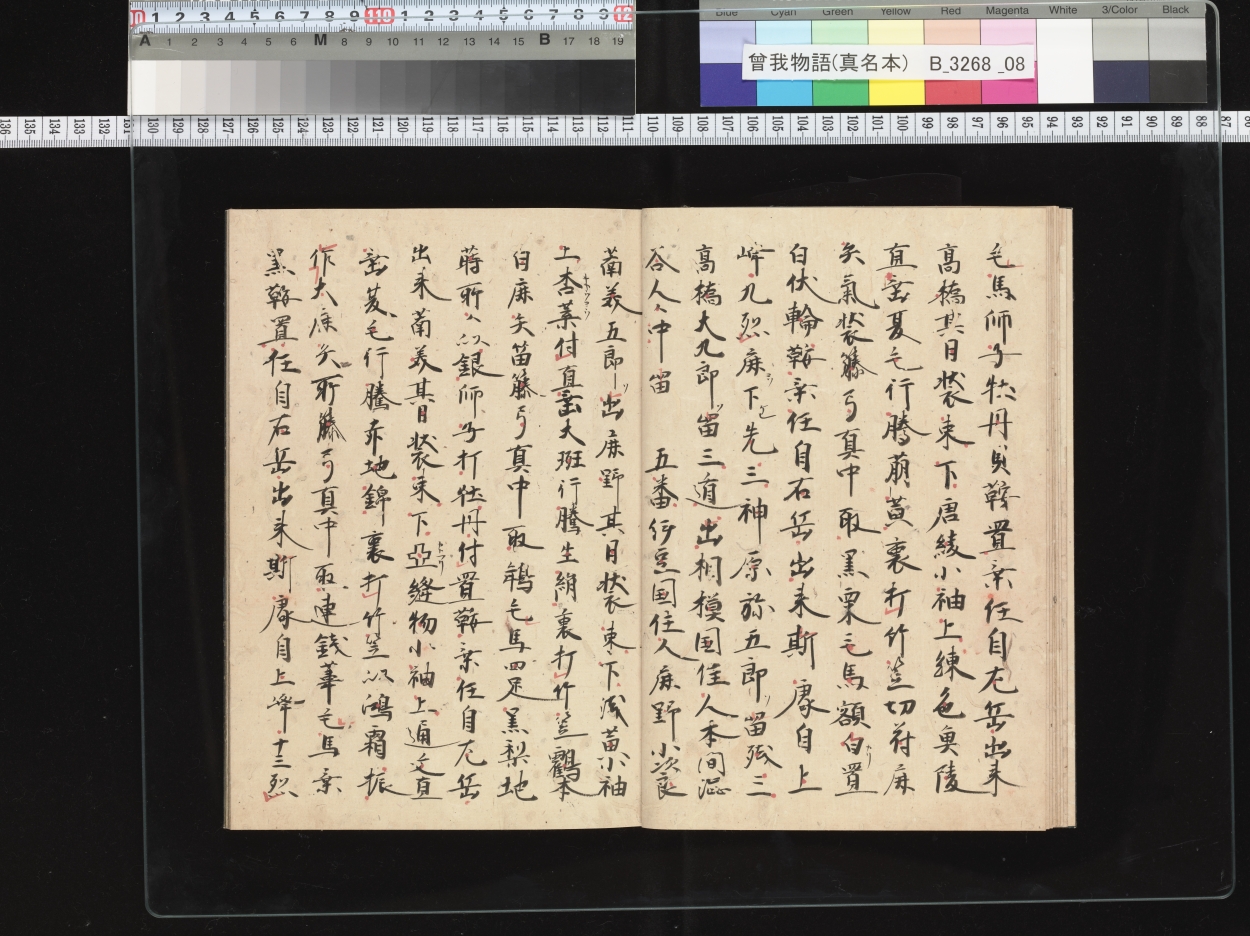 曾我物語(真名本) B_3268_08
毛馬師子牡丹貝鞍置乗任自左岳出来
高橋其日装束下唐綾小袖上練色魚陵
直垂夏毛行騰萠黄裏打竹笠切符麻
矢氣装藤弓真中取黒栗毛馬額白置
白伏輪鞍乗任自石岳出来斯康自上
峰九烈麻下先三神原弥五郎留残三
高橋大九郎留三道出相模国住人本間
谷人々中留 五番伊豆国住人麻野小次良
萬美五郎出麻野其日装束下浅黄小袖
上杏葉付直垂大斑行騰生絹裏打竹笠鸛本
白麻矢笛藤弓真中取鴾毛馬四足黒梨地
蒔所々以銀師子打牡丹付置鞍乗任自左岳
出来萬美其日装束下亞縫物小袖上通文直
垂夏毛行騰赤地錦裏打竹笠以鴻霜振
作大麻矢所藤弓真中取連錢葦毛馬乗
黒鞍置任自石岳出来斯康自上峰十三烈